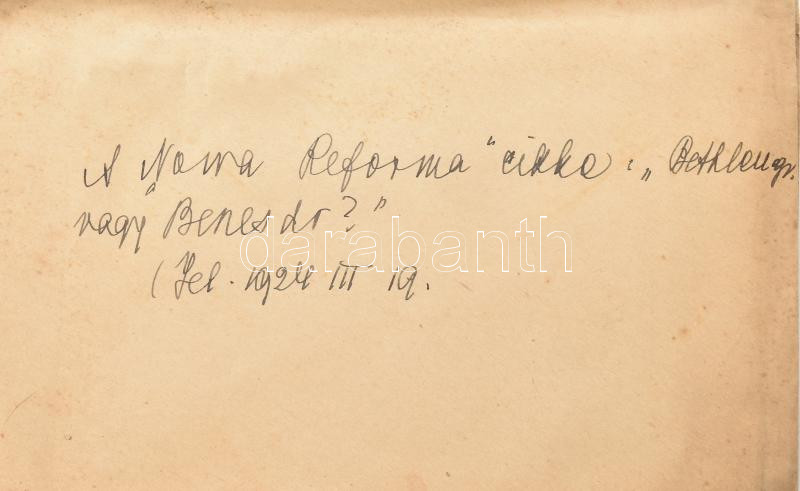 A „Nowa Reforma" cikke: „Bethlen gr.
vagy Benes dr?"
(Jel. 1924 III 19.
darabanth